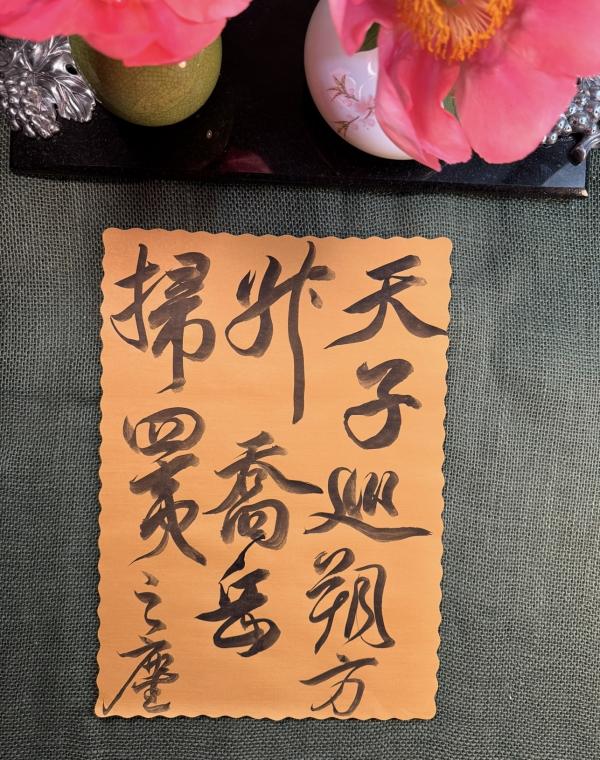 天子巡朔方
升喬岳
掃四夷之塵